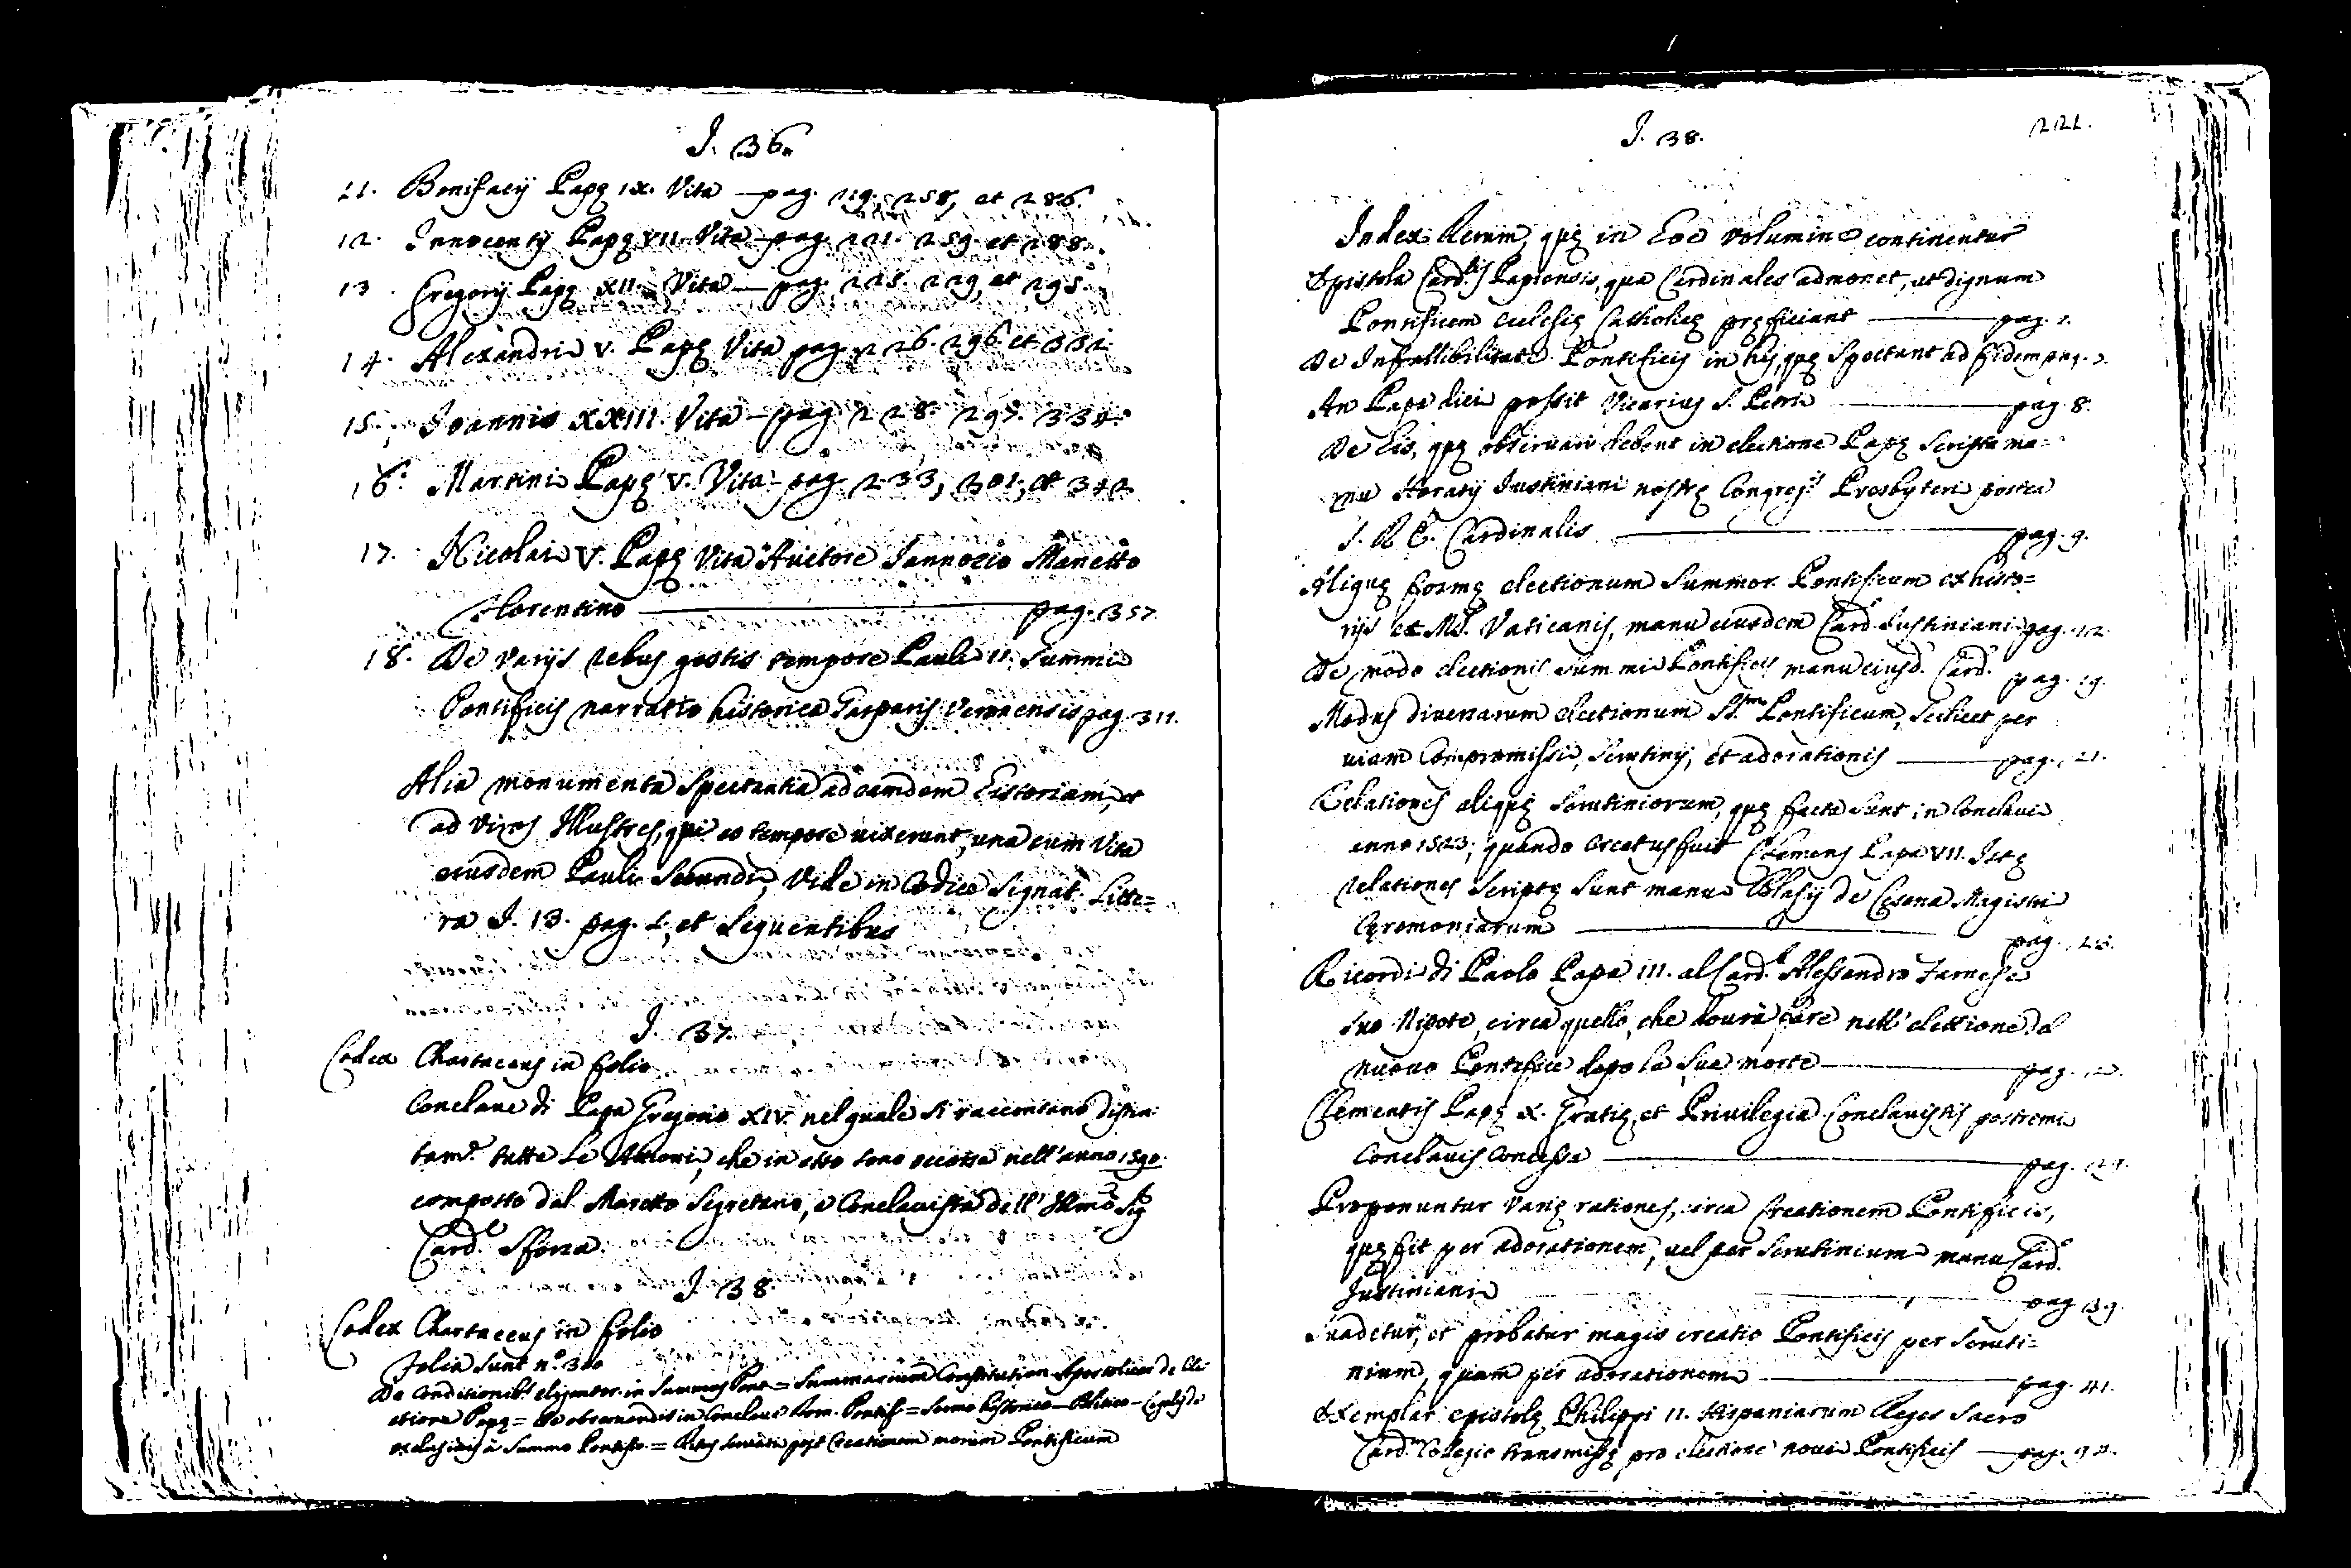 J. 36.
11. Bonifacij Papę IX. Vita — pag. 219, 258, et 286.
12. Innocentij Papę VII. Vita — pag. 221. 259. et 288.
13. Gregorij Papę XII. Vita — pag. 225. 229, et 295.
14. Alexandri V. Papę Vita pag. 226. 296. et 332.
15. Joannis XXIII. Vita — pag. 228. 297. 334.
16. Martini Papę V. Vita — pag. 233, 301, et 342
17. Nicolai V. Papę Vita Auctore Jannozio Manetto
Florentino — pag. 357.
18. De varijs rebus gestis tempore Pauli II. Summi
Pontificis narratio historica Gasparis Veronensis pag. 311.
Alia monumenta spectantia ad eamdem Historiam, et
ad Viros Illustres, qui eo tempore vixerunt, una cum Vita
eiusdem Pauli Secundi, Vide in Codice Signat. Litte=
ra J. 13. pag. 1, et sequentibus
J. 37.
Codex Chartaceus in folio
Conclave di Papa Gregorio XIV. nel quale si raccontano distin-
tam.e tutte le Attioni, che in esso sono occorse nell'anno 1590.
composto dal Moretto Segretario, e Conclavista dell' Illmo Sig
Card.e Sforza.
J. 38.
Codex Chartaceus in folio
Folia sunt n.o 300
De Conditionib.s eligentor. in Summos Pont = Summarium Constitution. Apostolicar. de Ele-
ctione Papę = De observandis in Conclavi Rom. Pontif. = Sermo Historico — Politico — Legalis de
exclusivis à Summo Pontif. = Ritus servati post Creationem novorum Pontificum
J. 38.
221.
Index Rerum, quę in hoc volumine continentur
Epistola Card.lis Papiensis, qua Cardinales admonet, ut dignum
Pontificem Ecclesię Catholicę pręficiant — pag. 1.
De Infallibilitate Pontificis in his, quę spectant ad fidem pag. 2.
An Papa dici possit Vicarius S. Petri — pag. 8.
De Eis, quę observari debent in electione Papę scripta ma=
nu Horatij Justiniani nostrę Congreg.is Presbyteri postea
S. R. E. Cardinalis — pag. 9.
Aliquę formę electionum Summor. Pontificum ex histo=
rijs et MS. Vaticanis, manu eiusdem Card. Justiniani pag. 12.
De modo electionis summi Pontificis manu eiusd. Card. pag. 19.
Modus diversarum electionum S.rum Pontificum, scilicet per
viam Compromissi, scrutinij, et adorationis — pag. 21.
Relationes aliquę scrutiniorum, quę facta sunt in Conclavi
anno 1523, quando creatus fuit Clemens Papa VII. Istę
relationes scriptę sunt manu Blasij de Cesena Magistri
Cęremoniarum — pag.
Ricordi di Paolo Papa III. al Card.l Alessandro Farnese
suo Nipote, circa quello, che dourà fare nell' elettione del
nuovo Pontefice dopo la sua morte — pag.
Clementis Papę X. Gratię, et Privilegia Conclavistis postremi
Conclavis Concessa — pag. 29.
Proponuntur varię rationes, circa Creationem Pontificis,
quę fit per adorationem, vel per scrutinium manu Card.
Justiniani — pag 39.
Suadetur, et probatur magis creatio Pontificis per scruti=
nium, quam per adorationem — pag. 41.
Exemplar epistolę Philippi II. Hispaniarum Reges Sacro
Card. Collegio transmissę pro electione novi Pontificis — pag.